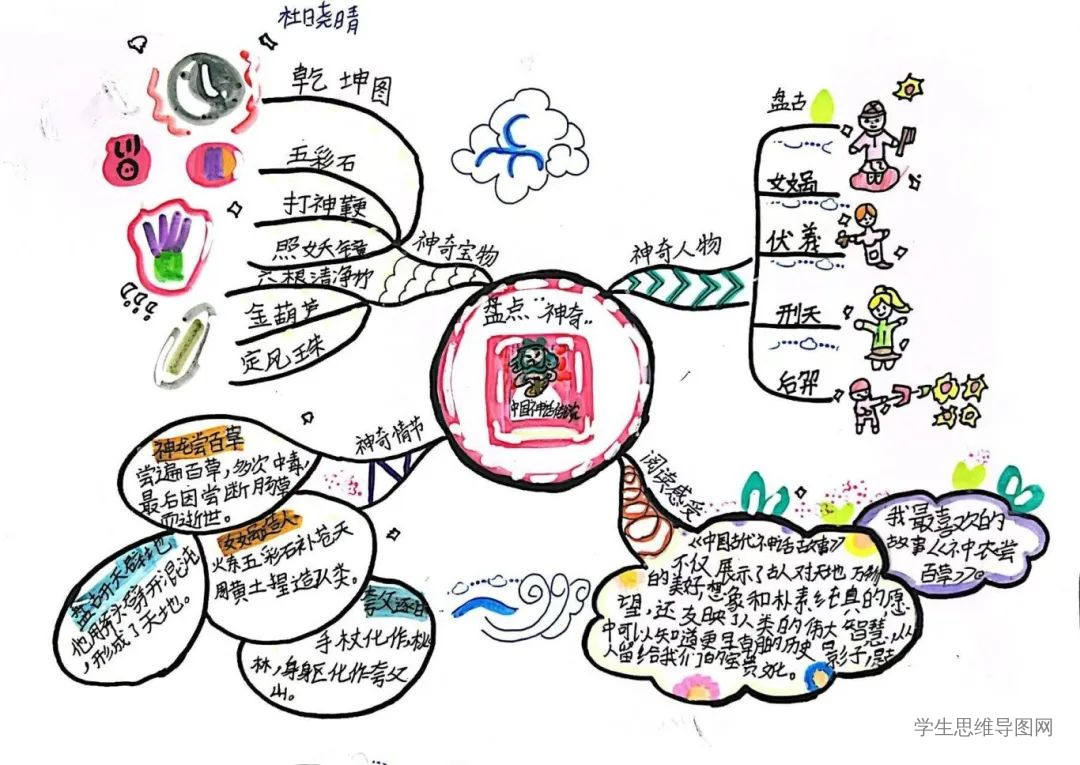 杜晓晴
乾坤图
五彩石
打神鞭
照妖镜
六根清净竹
金葫芦
定风珠
神奇宝物
盘点“神奇”
中国神话故事
神奇人物
盘古
女娲
伏羲
刑天
后羿
神奇情节
神龙尝百草
尝遍百草，多次中毒，
最后因尝断肠草
而逝世。
女娲造人
炼五彩石补苍天
用黄土捏造人类。
盘古开天辟地
他用斧头劈开混沌
，形成了天地。
夸父逐日
手杖化作桃
林，身躯化作夸父
山。
阅读感受
《中国古代神话故事》
不仅展示了古人对天地万物
的美好想象和朴素纯真的愿
望，还反映了人类的伟大智慧，从
中可以知道更早期的历史影子，是古
人留给我们的宝贵文化。
我最喜欢的
故事《神农尝
百草》。
学生思维导图网